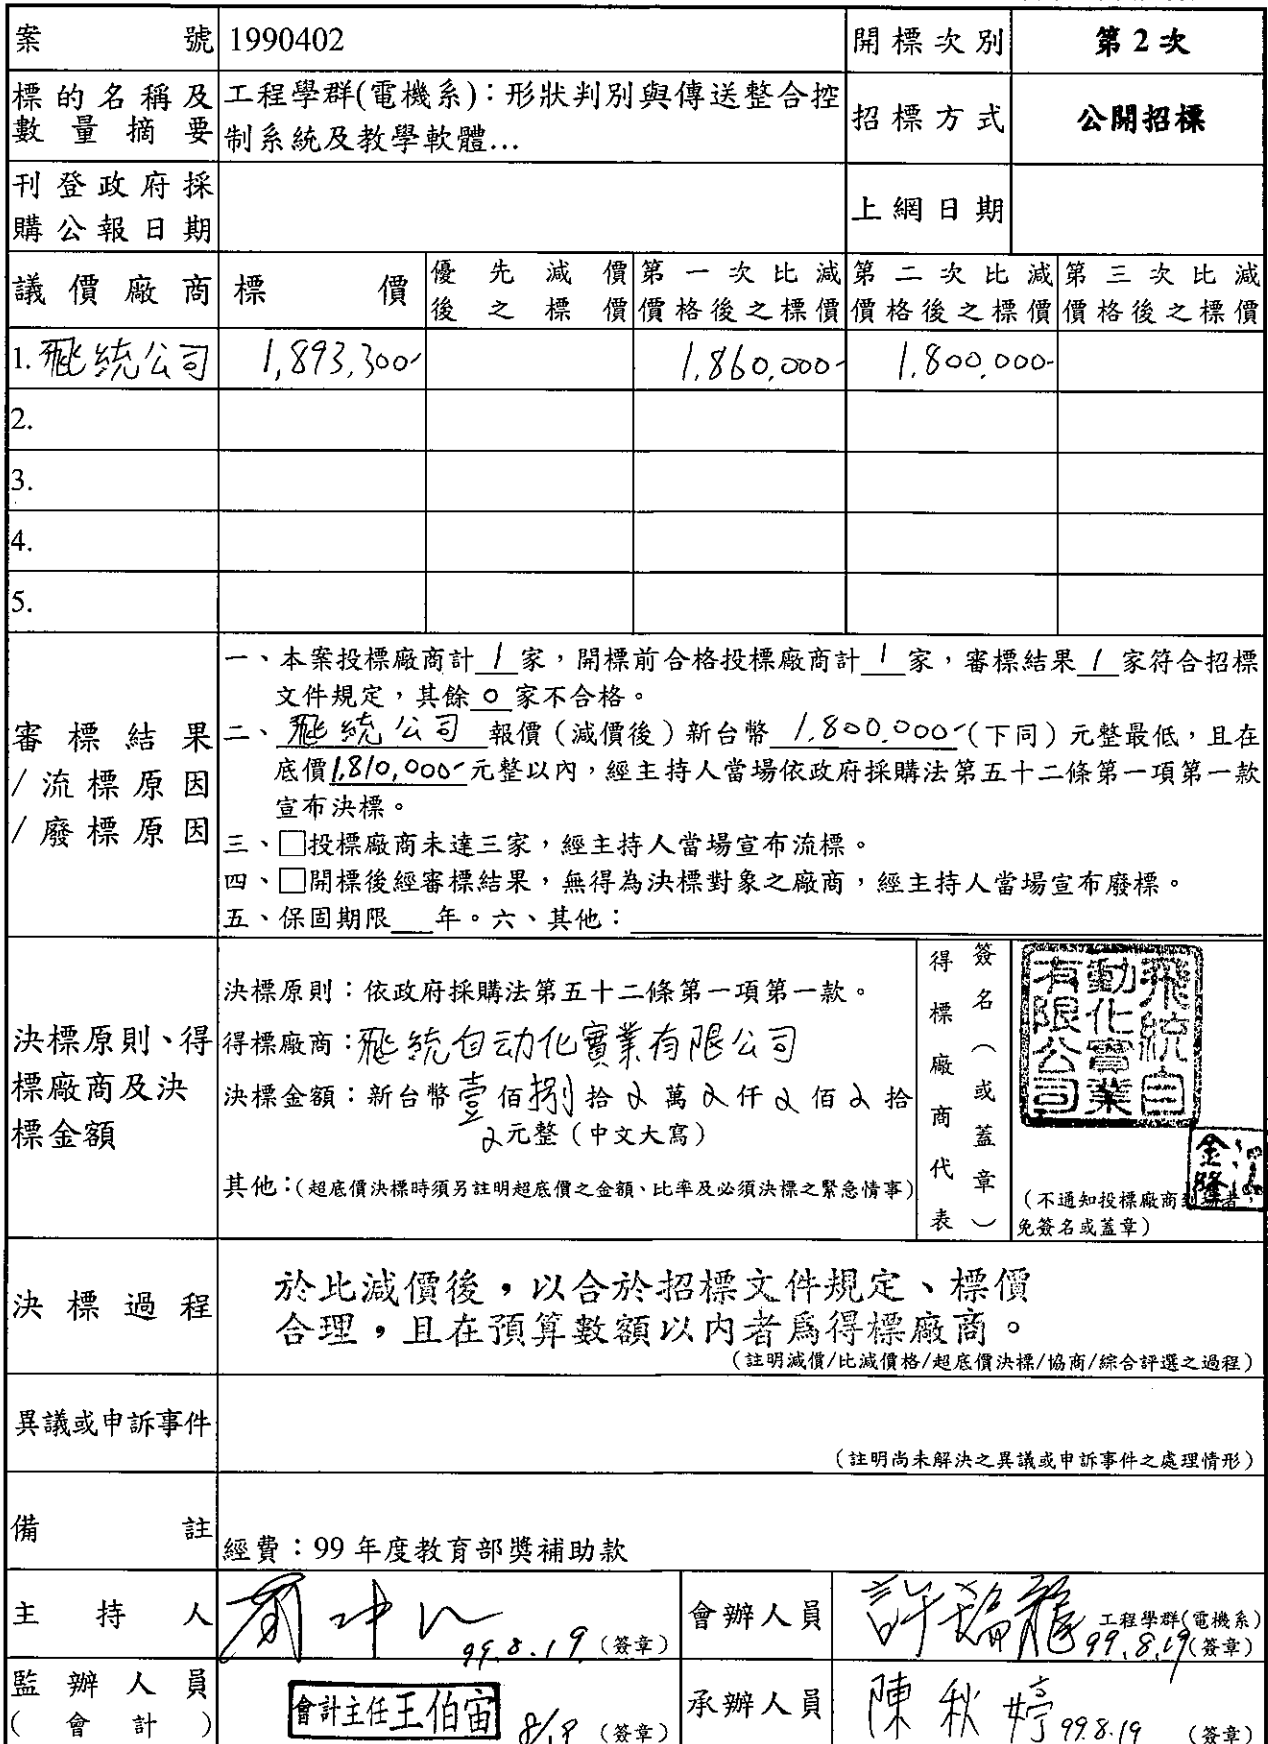 案號 1990402 開標次別 第2次
標的名稱及數量摘要 工程學群(電機系)：形狀判別與傳送整合控制系統及教學軟體... 招標方式 公開招標
刊登政府採購公報日期 上網日期
議價廠商 標價 優先減價後之標價 第一次比減價格後之標價 第二次比減價格後之標價 第三次比減價格後之標價
1. 飛統公司 1,893,300- 1,860,000- 1,800,000-
2.
3.
4.
5.
審標結果/流標原因/廢標原因
一、本案投標廠商計 1 家，開標前合格投標廠商計 1 家，審標結果 1 家符合招標
文件規定，其餘 0 家不合格。
二、飛統公司 報價（減價後）新台幣 1,800,000-（下同）元整最低，且在
底價1,810,000-元整以內，經主持人當場依政府採購法第五十二條第一項第一款
宣布決標。
三、□投標廠商未達三家，經主持人當場宣布流標。
四、□開標後經審標結果，無得為決標對象之廠商，經主持人當場宣布廢標。
五、保固期限___年。六、其他：
決標原則、得標廠商及決標金額
決標原則：依政府採購法第五十二條第一項第一款。
得標廠商：飛統自动化實業有限公司
決標金額：新台幣壹佰捌拾 萬 仟 佰 拾
元整（中文大寫）
其他：(超底價決標時須另註明超底價之金額、比率及必須決標之緊急情事)
得標廠商代表
簽名（或蓋章）
飛統自動化實業有限公司
金隆
（不通知投標廠商到場者，
免簽名或蓋章）
決標過程
於比減價後，以合於招標文件規定、標價
合理，且在預算數額以內者爲得標廠商。
（註明減價/比減價格/超底價決標/協商/綜合評選之過程）
異議或申訴事件
（註明尚未解決之異議或申訴事件之處理情形）
備註 經費：99 年度教育部獎補助款
主持人 99.8.19（簽章） 會辦人員 工程學群(電機系) 99.8.19（簽章）
監辦人員（會計） 會計主任王伯宙 8/19（簽章） 承辦人員 陳秋婷 99.8.19（簽章）